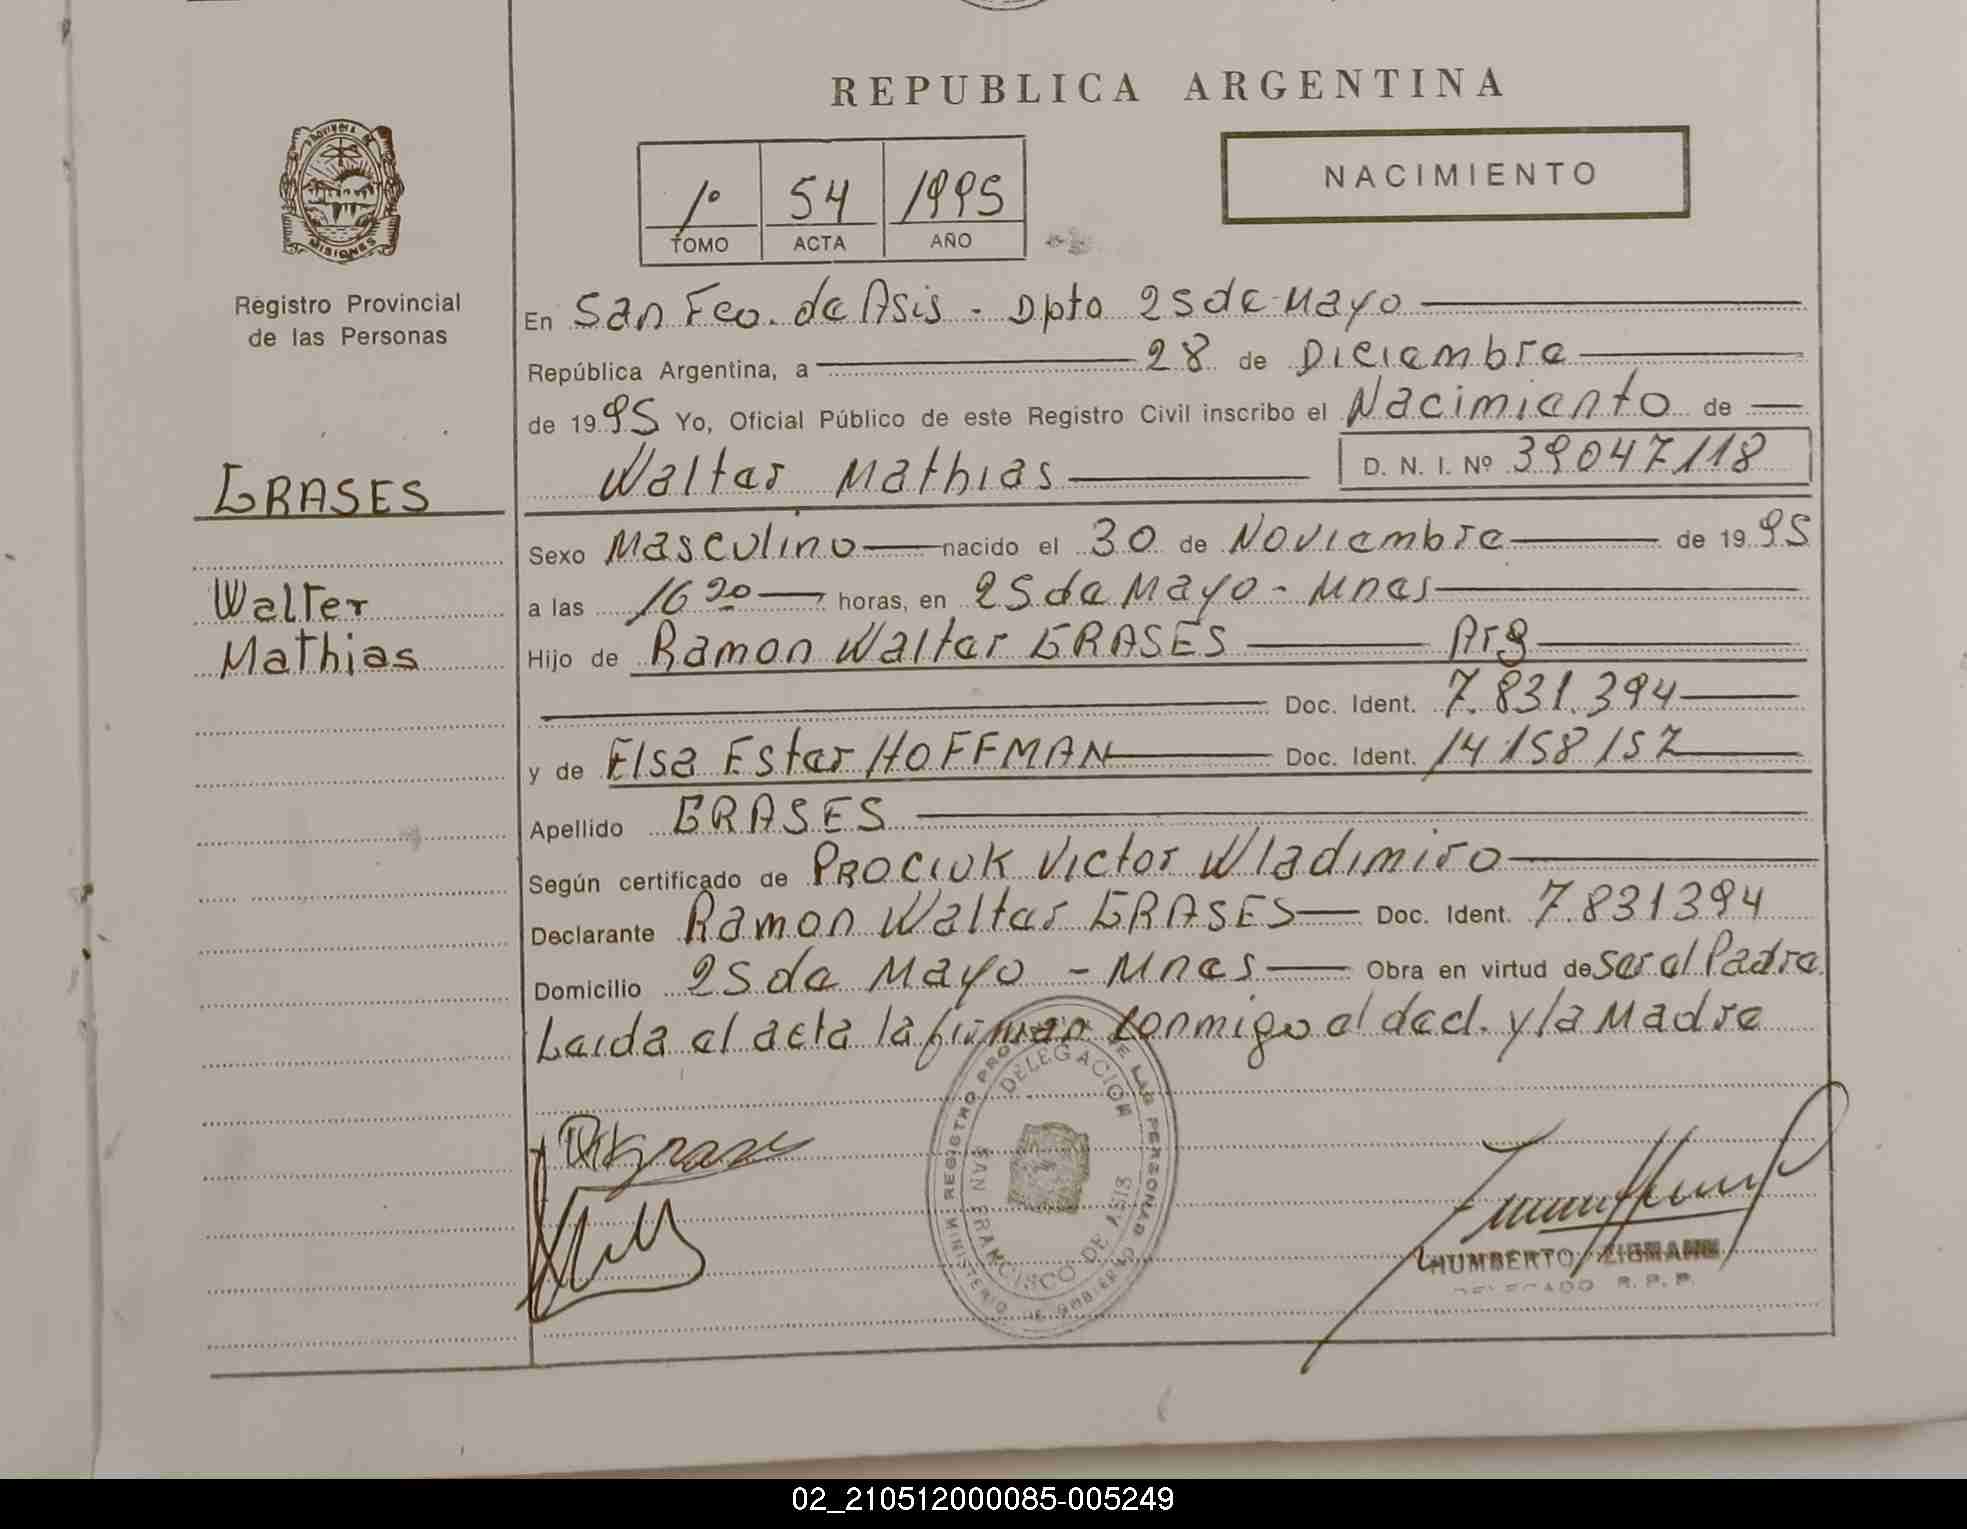 REPUBLICA ARGENTINA
NACIMIENTO
1º 54 1995
TOMO ACTA AÑO
PROVINCIA DE
MISIONES
Registro Provincial
de las Personas
GRASES
Walter
Mathias
En San Fco. de Asis - Dpto 25 de Mayo
República Argentina, a 28 de Diciembre
de 1995 Yo, Oficial Público de este Registro Civil inscribo el Nacimiento de
Walter Mathias D. N. I. Nº 39047118
Sexo Masculino nacido el 30 de Noviembre de 1995
a las 16 20 horas, en 25 de Mayo - Mnes
Hijo de Ramon Walter GRASES Arg
Doc. Ident. 7.831.394
y de Elsa Ester HOFFMAN Doc. Ident. 14158157
Apellido GRASES
Según certificado de PROCIUK Victor Wladimiro
Declarante Ramon Walter GRASES Doc. Ident. 7.831394
Domicilio 25 de Mayo - Mnes Obra en virtud de ser el Padre
Leida el acta la firman conmigo el decl. y la Madre
REGISTRO PROVINCIAL DE LAS PERSONAS
DELEGACION
SAN FRANCISCO DE ASIS
MINISTERIO DE GOBIERNO
HUMBERTO
DELEGADO R. P. P.
02_210512000085-005249